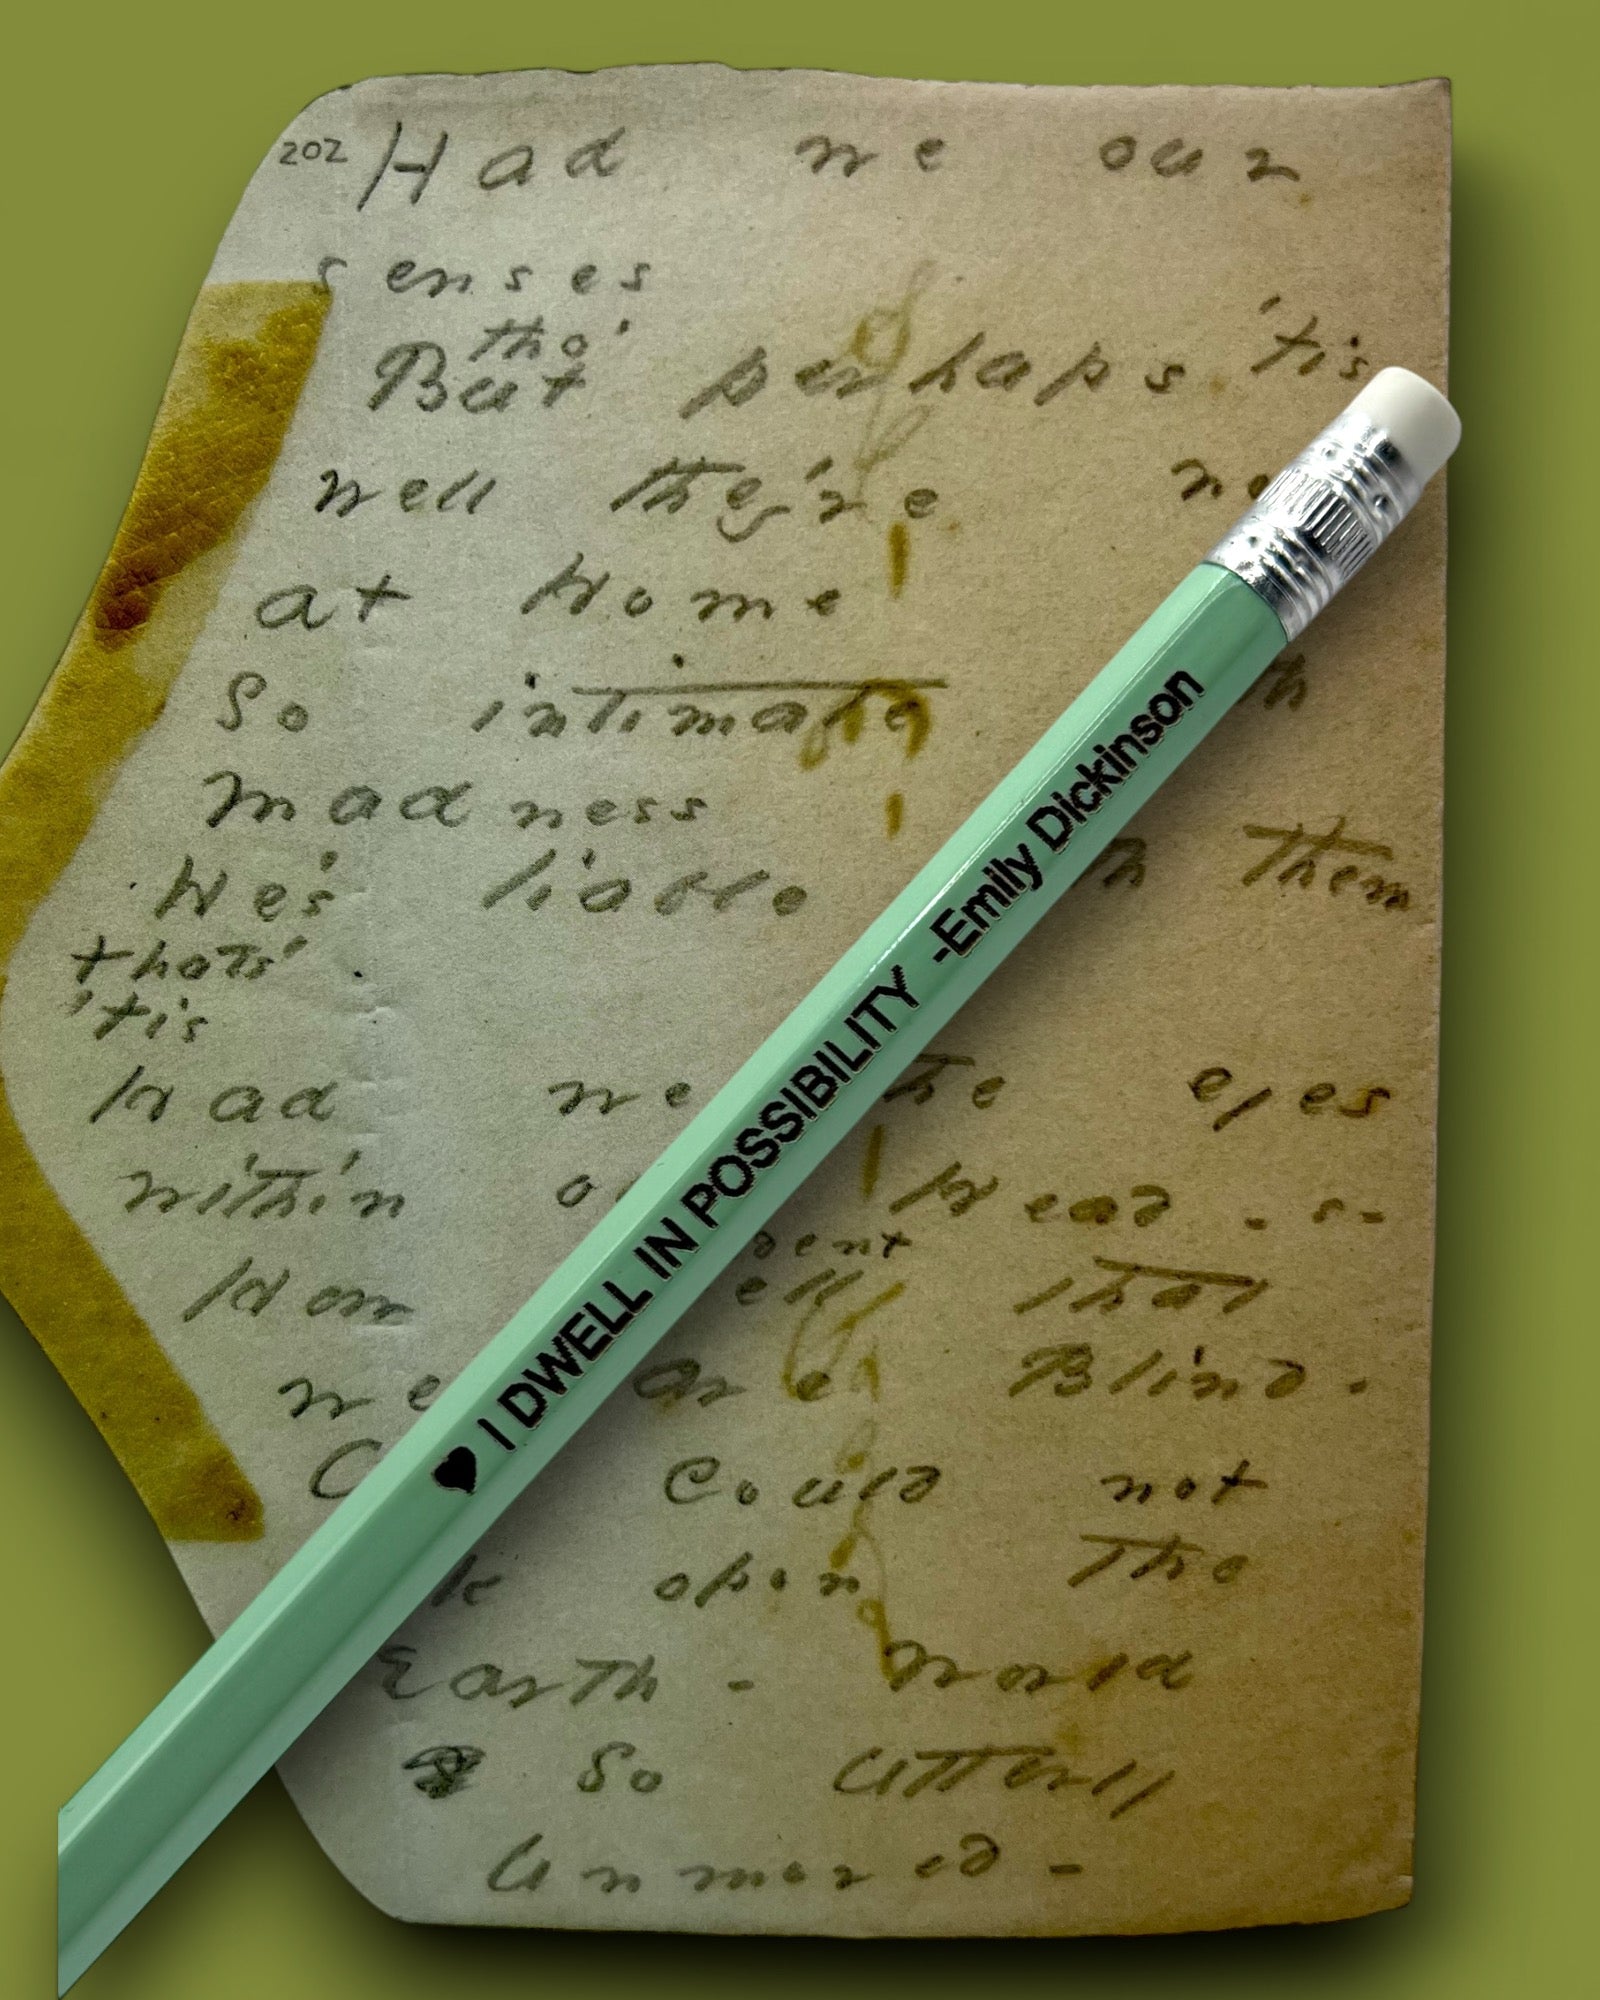 202 Had we our
senses
tho'
But perhaps 'tis
well they're
at Home
So intimate
madness
He's liable them
that's
'tis
Had we the eyes
within Head - s-
How
we are Blind.
Could not
open the
Earth - World
So utterly
Unmoved -
♥ I DWELL IN POSSIBILITY -Emily Dickinson